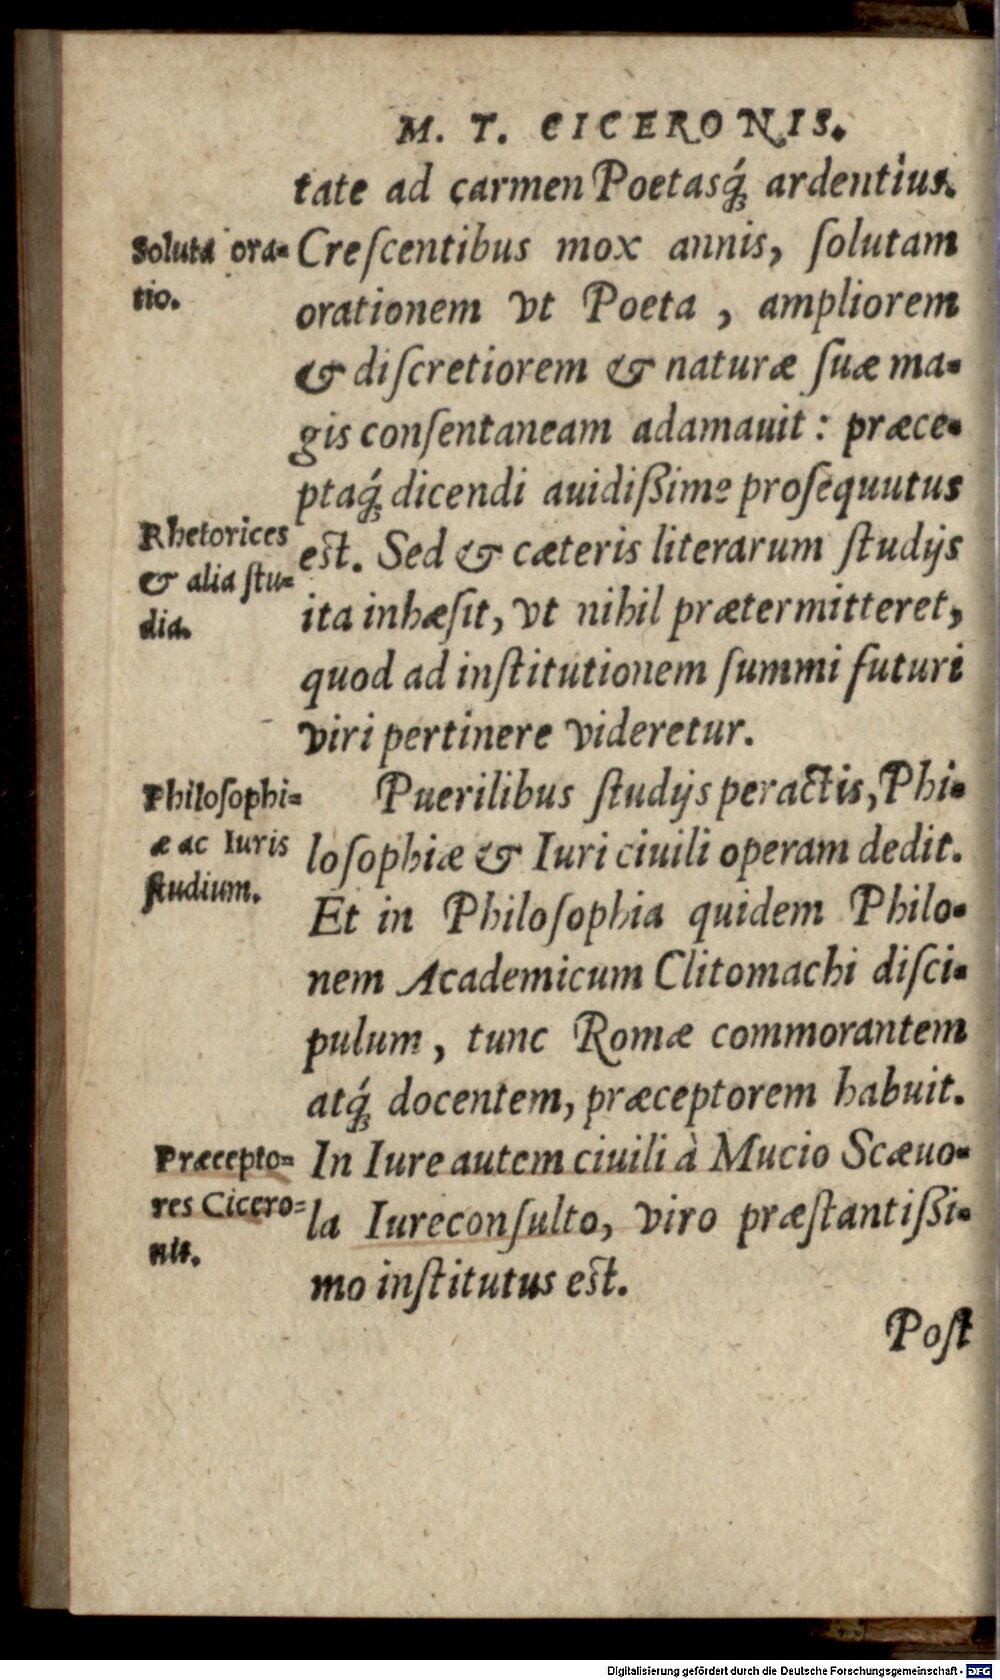 M. T. CICERONIS.
tate ad carmen Poetasq́; ardentius.
Soluta ora-
tio.
Creſcentibus mox annis, ſolutam
orationem vt Poeta , ampliorem
& diſcretiorem & naturæ ſuæ ma-
gis conſentaneam adamauit : præce-
ptaq́; dicendi auidißime proſequutus
Rhetorices
& alia ſtu-
dia.
est. Sed & cæteris literarum ſtudijs
ita inhæſit, vt nihil prætermitteret,
quod ad inſtitutionem ſummi futuri
viri pertinere videretur.
Philoſophi-
æ ac Iuris
ſtudium.
Puerilibus ſtudijs peractis, Phi-
loſophiæ & Iuri ciuili operam dedit.
Et in Philoſophia quidem Philo-
nem Academicum Clitomachi diſci-
pulum , tunc Romæ commorantem
atq́; docentem, præceptorem habuit.
Præcepto-
res Cicero-
nis.
In Iure autem ciuili à Mucio Scæuo-
la Iureconſulto, viro præſtantißi-
mo inſtitutus est.
Poſt
Digitalisierung gefördert durch die Deutsche Forschungsgemeinschaft - DFG